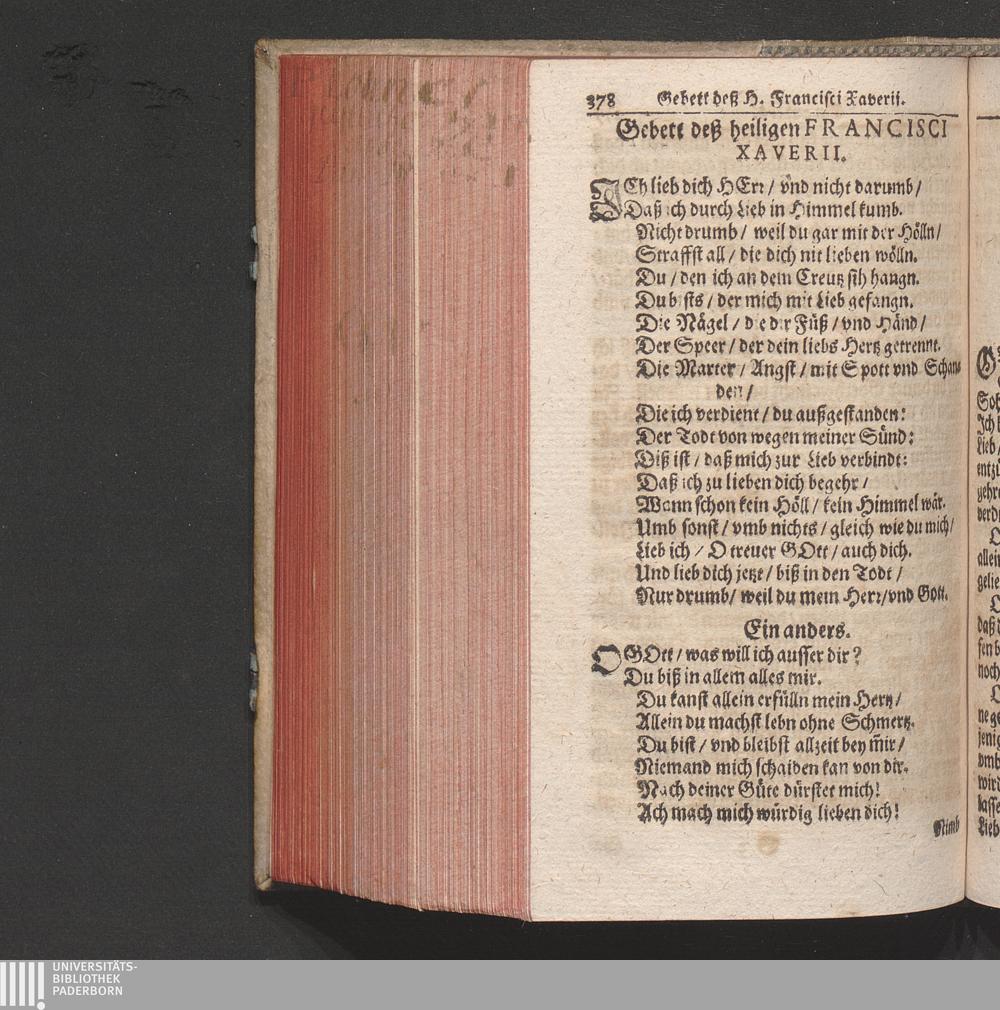 378 Gebett deß H. Francisci Xaverii.
Gebett deß heiligen FRANCISCI
XAVERII.
ICh lieb dich HErr / vnd nicht darumb /
Daß ich durch Lieb in Himmel kumb.
Nicht drumb / weil du gar mit der Hölln /
Straffst all / die dich nit lieben wölln.
Du / den ich an dem Creutz sih hangn.
Du bists / der mich mit Lieb gefangn.
Die Nägel / die dir Füß / vnd Händ /
Der Speer / der dein liebs Hertz getrennt.
Die Marter / Angst / mit Spott vnd Schan-
den /
Die ich verdient / du außgestanden:
Der Todt von wegen meiner Sünd:
Diß ist / daß mich zur Lieb verbindt:
Daß ich zu lieben dich begehr /
Wann schon kein Höll / kein Himmel wär.
Umb sonst / vmb nichts / gleich wie du mich /
Lieb ich / O treuer GOtt / auch dich.
Und lieb dich jetzt / biß in den Todt /
Nur drumb / weil du mein Herr / vnd Gott.
Ein anders.
O GOtt / was will ich ausser dir?
Du biß in allem alles mir.
Du kanst allein erfülln mein Hertz /
Allein du machst lebn ohne Schmertz.
Du bist / vnd bleibst allzeit bey m̃ir /
Niemand mich schaiden kan von dir.
Nach deiner Güte dürstet mich!
Ach mach mich würdig lieben dich!
Nimb
UNIVERSITÄTS-
BIBLIOTHEK
PADERBORN